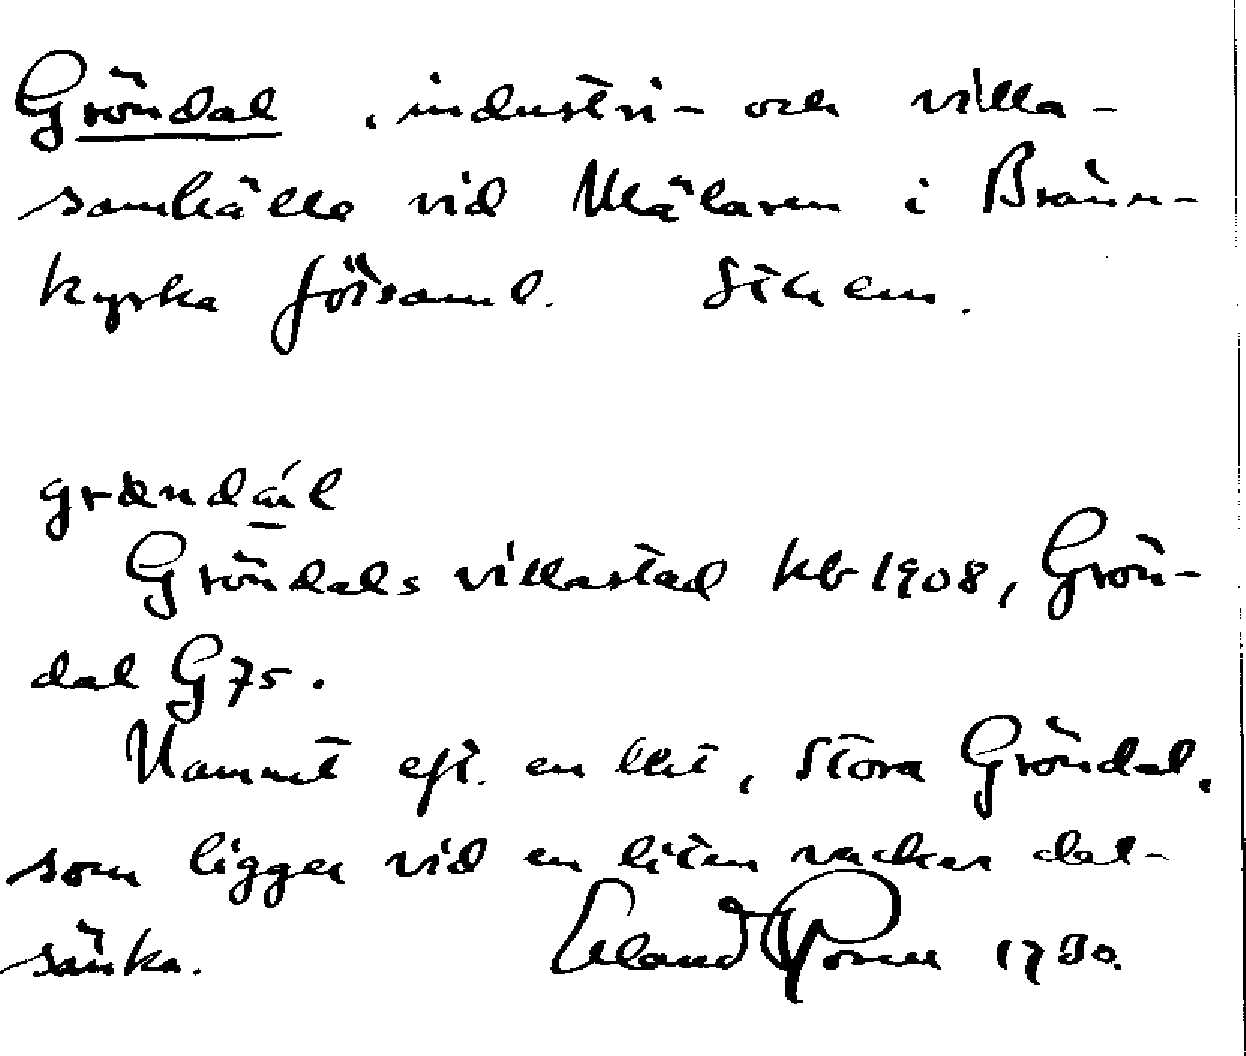 Gröndal, industri- och villa-
samhälle vid Mälaren i Bränn-
kyrka församl. Sthlm.
Gröndals villastad kb 1908, Grön-
dal G 75.
Namnet eft. en lht, Stora Gröndal,
som ligger vid en liten vacker dal-
sänka. Erland Rosell 1980.